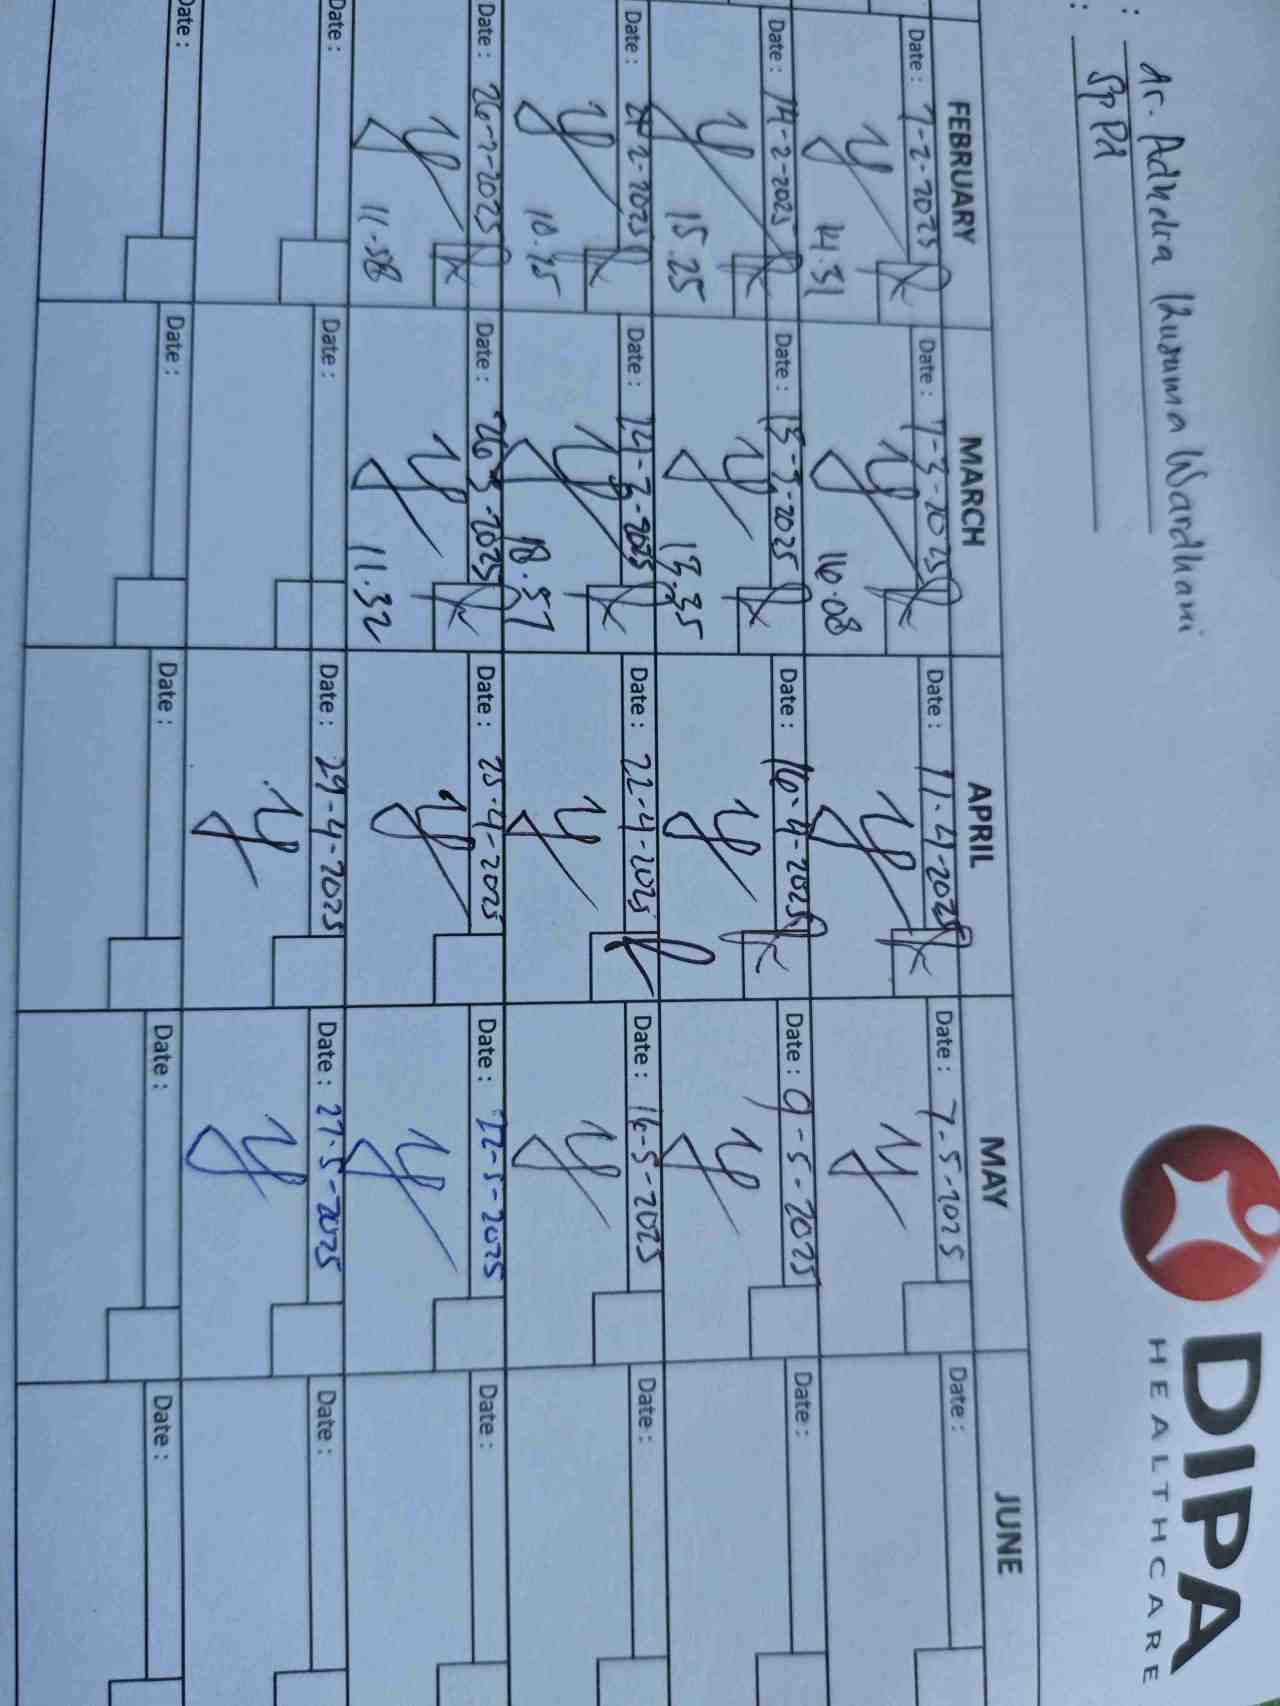 : dr. Adhelia Kusuma Wardhani
: Sp Pd
DIPA
HEALTHCARE
FEBRUARY MARCH APRIL MAY JUNE
Date : 7-2-2025 Date : 7-3-2025 Date : 11-4-2025 Date : 7-5-2025 Date :
14.31 16.08
Date : 14-2-2025 Date : 13-3-2025 Date : 16-4-2025 Date : 9-5-2025 Date :
15.25 13.35
Date : 21-2-2025 Date : 14-3-2025 Date : 22-4-2025 Date : 16-5-2025 Date :
10.45 18.57
Date : 26-2-2025 Date : 26-3-2025 Date : 25-4-2025 Date : 22-5-2025 Date :
11.58 11.32
Date : Date : Date : 29-4-2025 Date : 27-5-2025 Date :
Date : Date : Date : Date : Date :